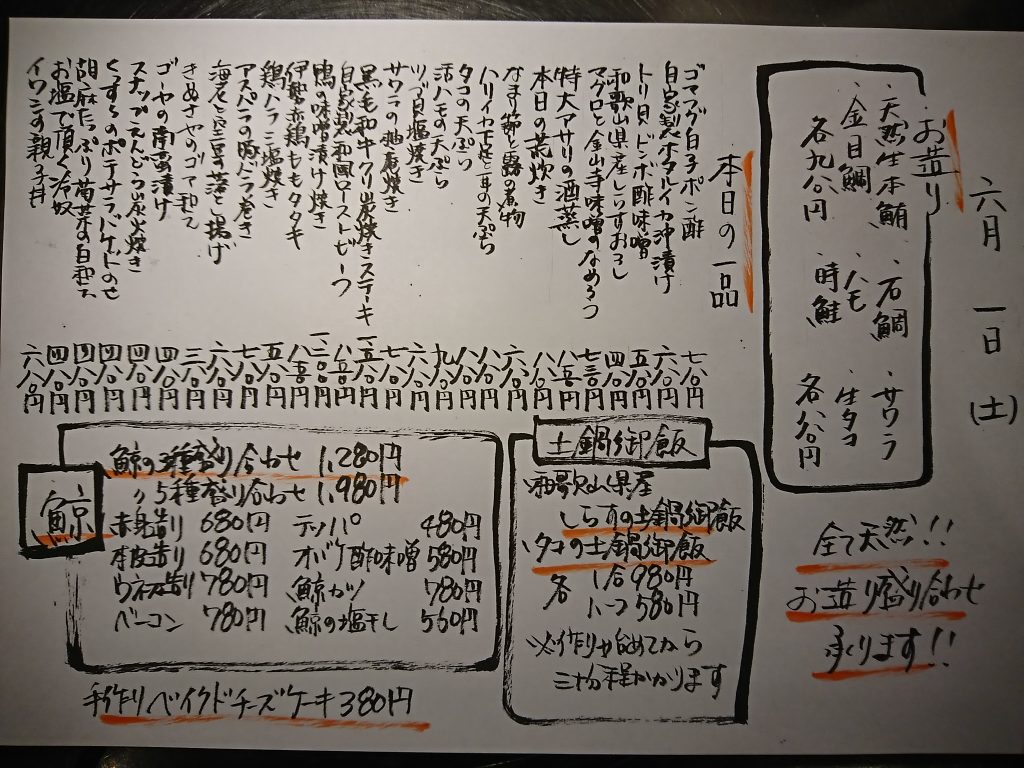 六月 一日(土)
お造り
・天然生本鮪 ・石鯛 ・サワラ
・金目鯛 ・ハモ ・生タコ
各九八〇円 ・時鮭 各八八〇円
全て天然!!
お造り盛り合わせ
承ります!!
本日の一品
ゴマフグ白子ポン酢 七八〇円
自家製ホタルイカ沖漬け 六八〇円
トリ貝ドンボ酢味噌 五八〇円
和歌山県産しらすおろし 四八〇円
マグロと金山寺味噌のなめろう 七三〇円
特大アサリの酒蒸し 八五〇円
本日の荒炊き 八八〇円
なまり節と蕗の煮物 六八〇円
ハリイカ下足と耳の天ぷら 八八〇円
タコの天ぷら 八八〇円
活ハモの天ぷら 九八〇円
ツブ貝塩焼き 六八〇円
サワラの柚庵焼き 七八〇円
黒毛和牛クリ炭焼きステーキ 一五八〇円
自家製和風ローストビーフ 八八〇円
鴨の味噌漬け焼き 一二〇〇円
伊勢赤鶏ももタタキ 八五〇円
鶏ハラミ塩焼き 五八〇円
アスパラの豚バラ巻き 七八〇円
海老と空豆の落とし揚げ 六八〇円
きぬさやのゴマ和え 三八〇円
ゴーヤの南蛮漬け 四八〇円
スナップえんどう炭火焼き 四八〇円
くずしポテサラバケットのせ 四八〇円
胡麻たっぷり菊菜の白和え 四八〇円
お塩で頂く冷奴 四八〇円
イワシの親子丼 六八〇円
土鍋御飯
・和歌山県産
しらすの土鍋御飯
・タコの土鍋御飯
各 1合980円
ハーフ580円
※作り始めてから
三十分程かかります
鯨
鯨の3種盛り合わせ 1,280円
〃5種盛り合わせ 1,980円
赤身造り 680円 テッパ 480円
本皮造り 680円 オバケ酢味噌 580円
ウネス造り 780円 鯨カツ 780円
ベーコン 780円 鯨の塩干し 560円
手作りベイクドチーズケーキ380円